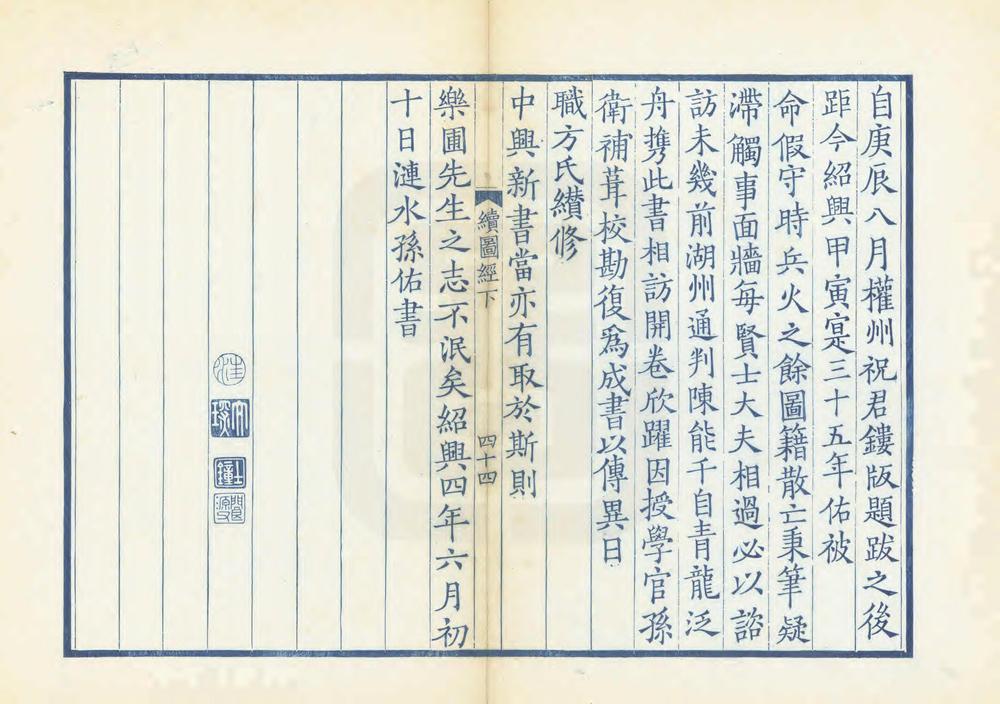 自庚辰八月權州祝君鏤版題跋之後
距今紹興甲寅寔三十五年佑被
命假守時兵火之餘圖籍散亡秉筆疑
滯觸事面牆每賢士大夫相過必以諮
訪未幾前湖州通判陳能千自青龍泛
舟攜此書相訪開卷欣躍因授學官孫
衛補葺校勘復爲成書以傳異日
職方氏纘修
中興新書當亦有取於斯則
續圖經下
四十四
樂圃先生之志不泯矣紹興四年六月初
十日漣水孫佑書